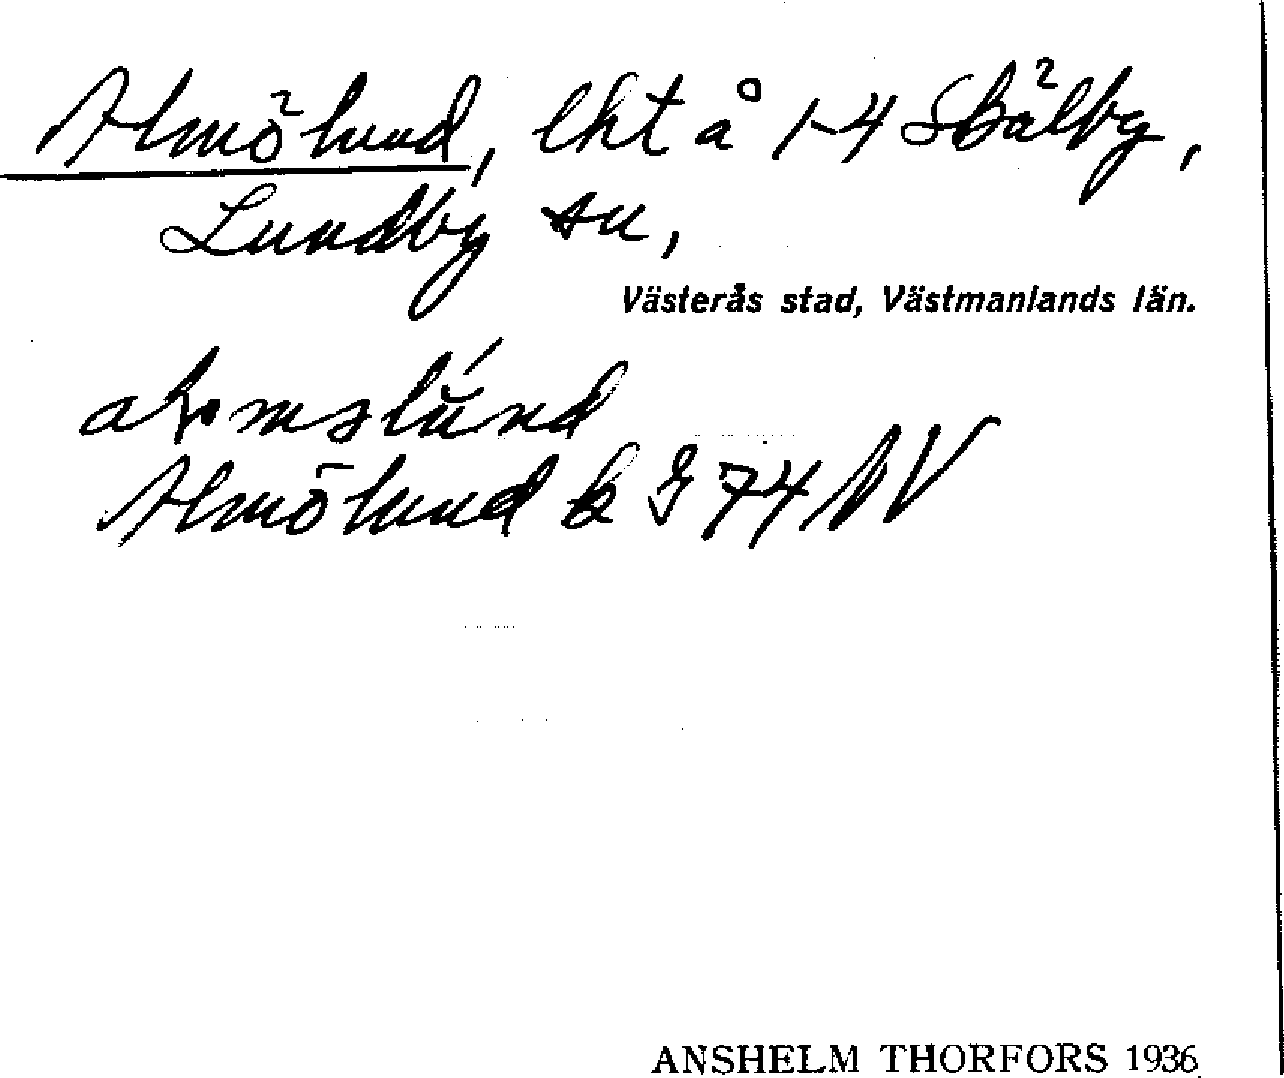 Almölund, lht å 1-4 Skälby,
Lundby sn,
Västerås stad, Västmanlands län.
Almölund k J 74 NV
ANSHELM THORFORS 1936